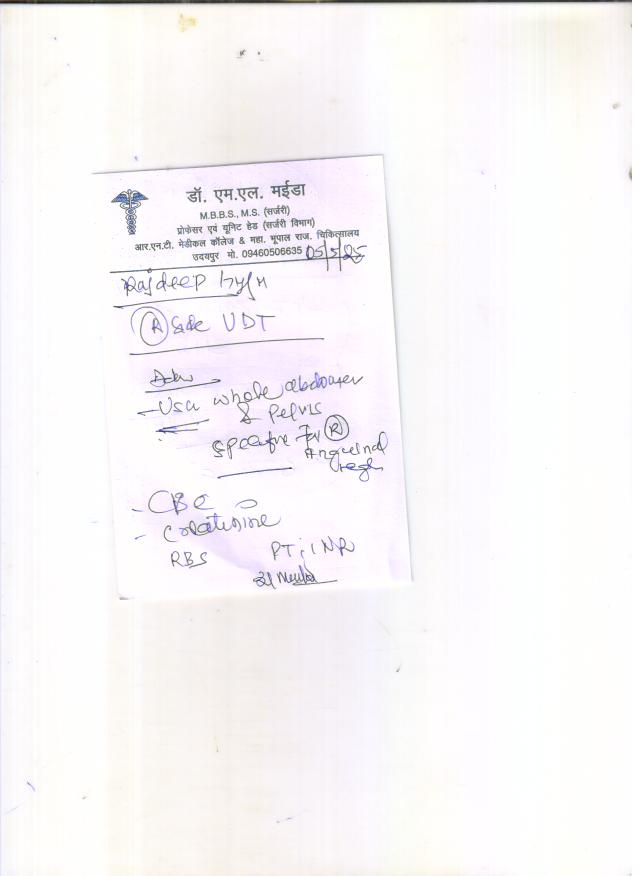 डॉ. एम.एल. मईडा
M.B.B.S., M.S. (सर्जरी)
प्रोफेसर एवं यूनिट हेड (सर्जरी विभाग)
आर.एन.टी. मेडीकल कॉलेज & महा. भूपाल राज. चिकित्सालय
उदयपुर मो. 09460506635 05/5/25
Rajdeep
R Side UDT
Adv
- USG whole abdomen
& Pelvis
specific for R
Inguinal
region
- CBC
- Creatinine
RBS PT; INR